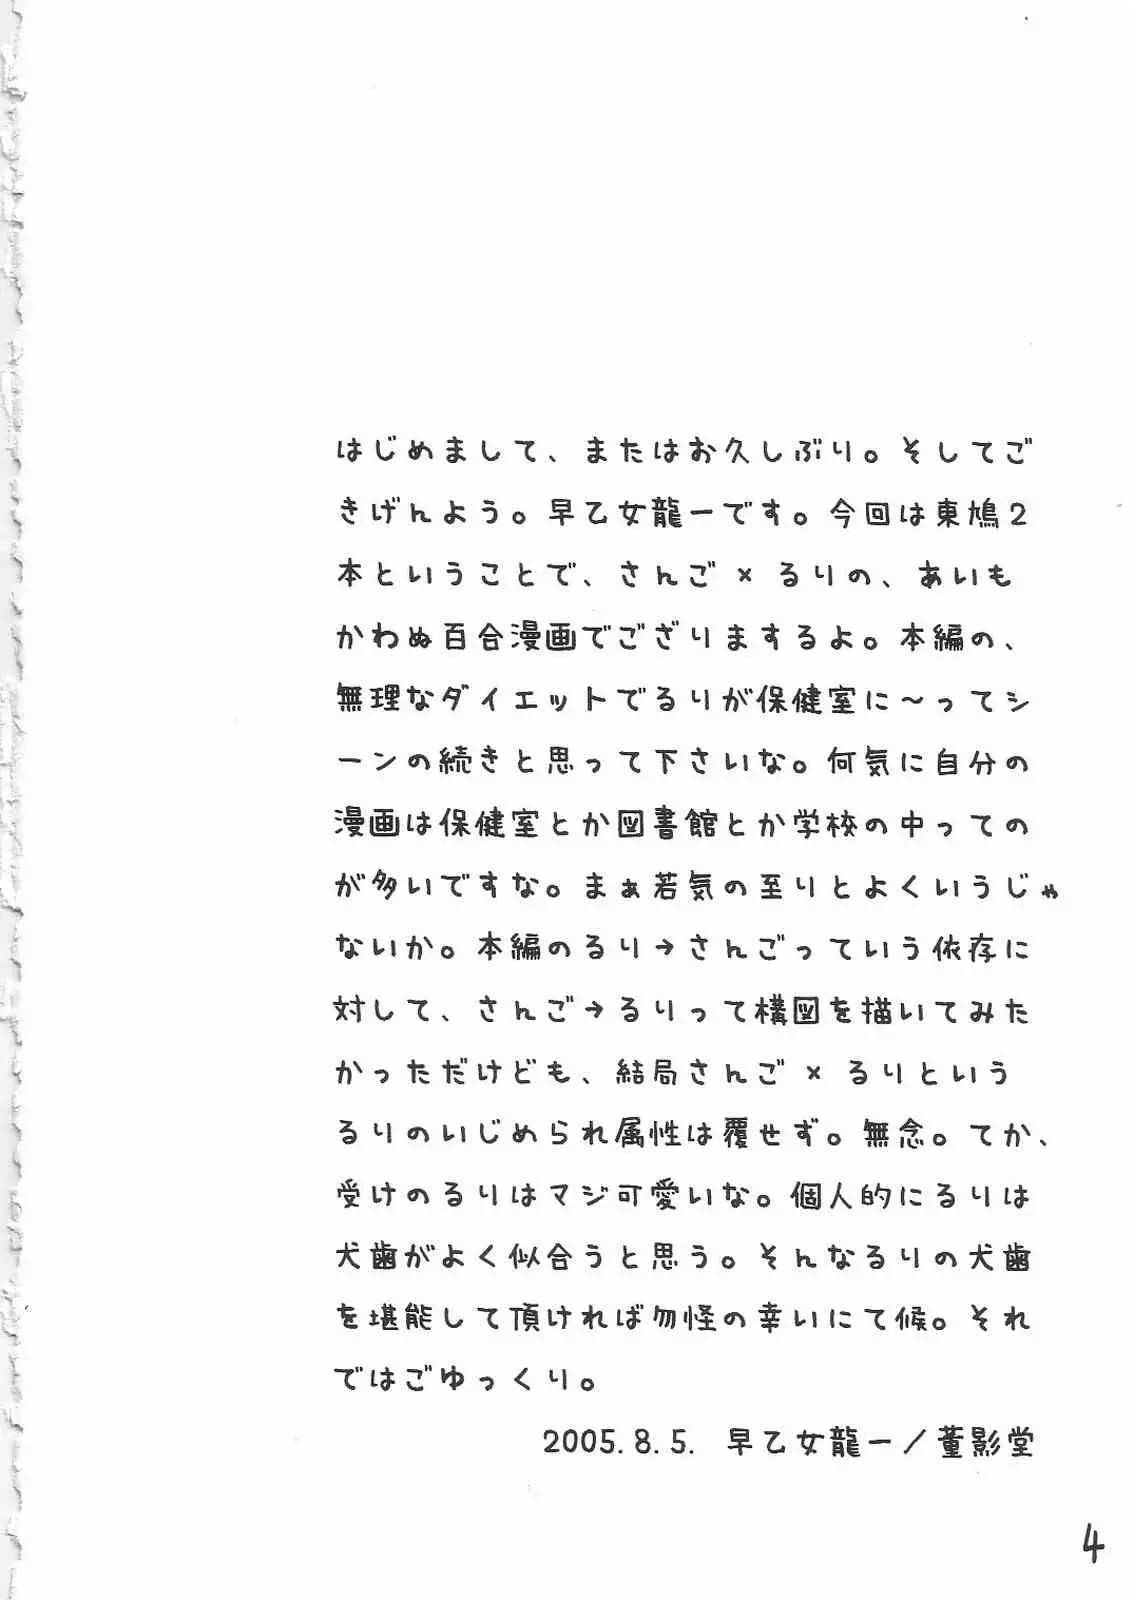 はじめまして、またはお久しぶり。そしてご
きげんよう。早乙女龍一です。今回は東鳩2
本ということで、さんご×るりの、あいも
かわぬ百合漫画でござりまするよ。本編の、
無理なダイエットでるりが保健室に〜ってシ
ーンの続きと思って下さいな。何気に自分の
漫画は保健室とか図書館とか学校の中っての
が多いですな。まぁ若気の至りとよくいうじゃ
ないか。本編のるり→さんごっていう依存に
対して、さんご→るりって構図を描いてみた
かっただけども、結局さんご×るりという
るりのいじめられ属性は覆せず。無念。てか、
受けのるりはマジ可愛いな。個人的にるりは
犬歯がよく似合うと思う。そんなるりの犬歯
を堪能して頂ければ勿怪の幸いにて候。それ
ではごゆっくり。
2005.8.5. 早乙女龍一／菫影堂
4